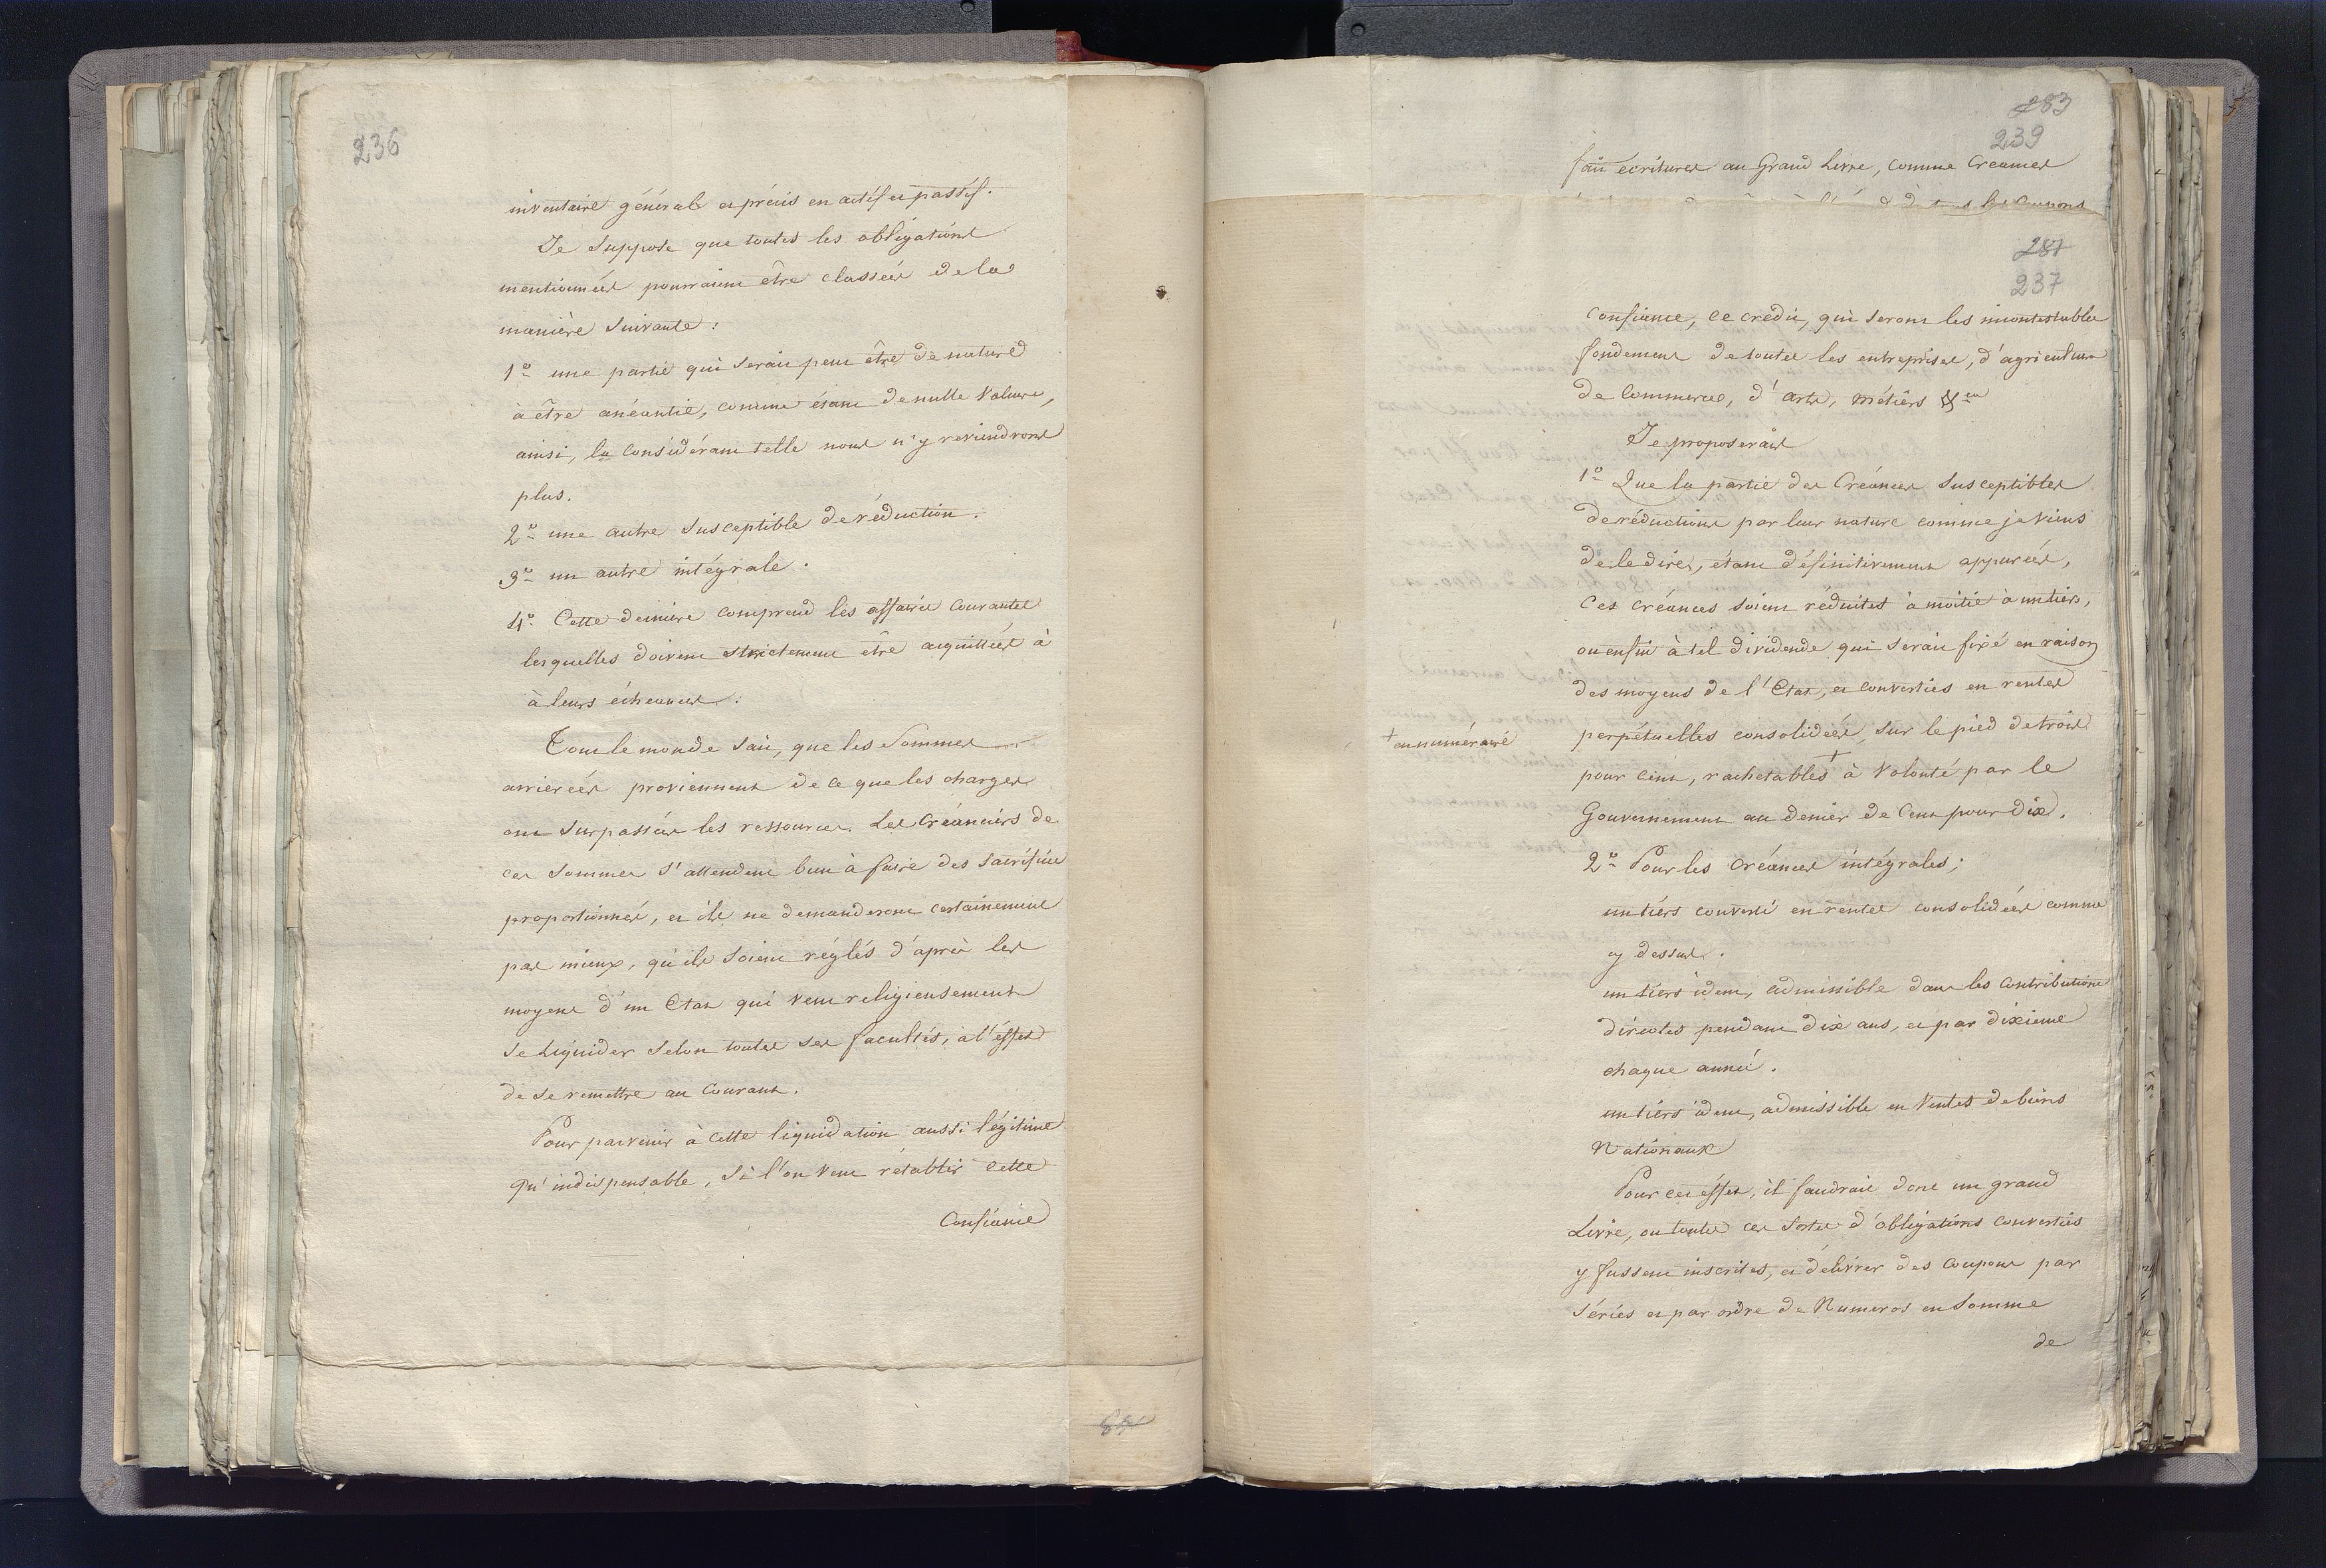 236
inventaire générale et précis en actif et passif.
Je suppose que toutes les obligations
mentionnées pourraient être classées de la
manière suivante :
1º une partie qui serait peut être de nature
à être anéantie, comme étant de nulle valeure,
ainsi, la considérant telle nous n'y reviendrons
plus.
2º une autre susceptible de réduction.
3º un autre intégrale.
4º Cette derniere comprend les affaires courantes
lesquelles doivent strictement être acquittées à
à leurs écheances.
Tout le monde sait, que les sommes
arrierées proviennent de ce que les charges
ont surpassées les ressources. Les Créanciers de
ces sommes s'attendent bien à faire des sacrifices
proportionnés, et ils ne demanderont certainement
pas mieux, qu'ils soient réglés d'après les
moyens d'un Etat qui veut religieusement
se liquider selon toutes ses facultés, à l'effet
de se remettre au Courant.
Pour parvenir à cette liquidation aussi légitime
qu'indispensable, si l'on veut rétablir cette
Confiance
283
239
fait écritures au Grand Livre, comme Creances
les Coupons
287
237
confiance, ce credit, qui seront les incontestables
fondement de toutes les entreprises, d'agriculture
de Commerce, d'arts, métiers &ca
Je proposerais
1º Que la partie des Créances susceptibles
de réductions par leur nature comme je viens
de le dire, étant définitivement appurées,
ces créances soient réduites à moitié à un tiers,
ou enfin à tel dividende qui serait fixé en raison
des moyens de l'Etat, et converties en rentes
perpétuelles consolidées, sur le pied de trois
+ en numéraire
pour cent, rachetables + à volonté par le
Gouvernement au denier de Cent pour Dix.
2º Pour les créances intégrales ;
un tiers converti en rentes consolidées comme
cy dessus.
un tiers idem, admissible dans les Contributions
directes pendant dix ans, et par dixieme
chaque année.
un tiers idem, admissible en Ventes de biens
Nationaux
Pour cet effet, il faudrait donc un grand
Livre, ou toutes ces sortes d'obligations converties
y fussent inscrites, et délivrer des Coupons par
séries et par ordre de Numeros en somme
de